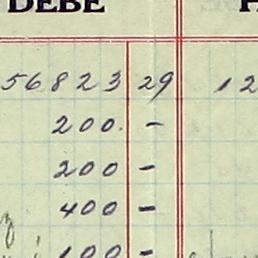 DEBE H
56823 29 12
200. -
200 -
400 -
100 -